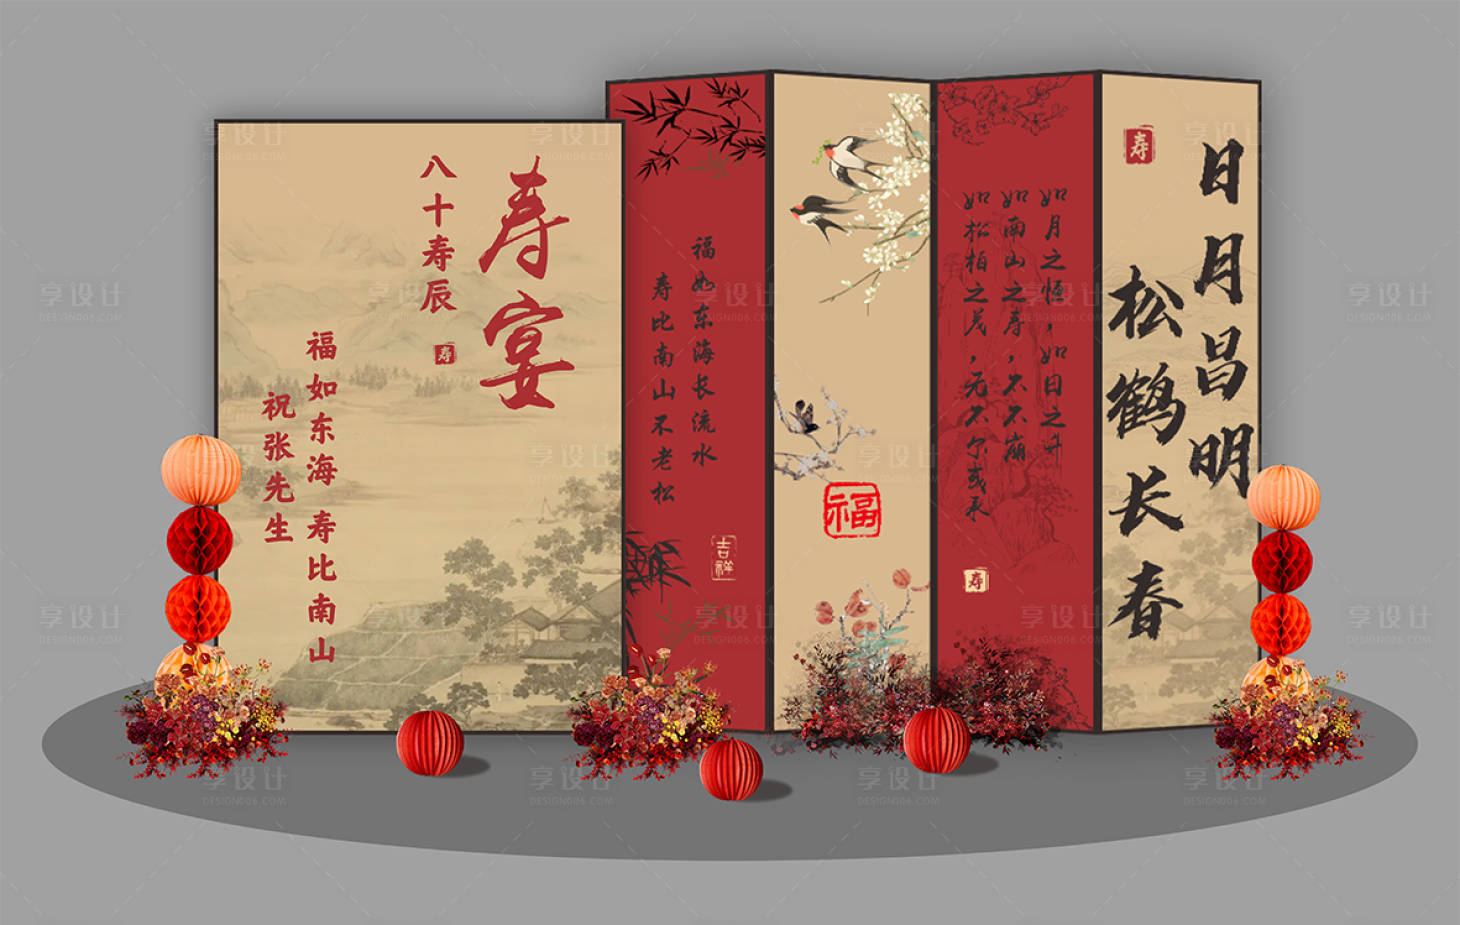 寿宴
八十寿辰
寿
福如东海 寿比南山
祝张先生
福如东海长流水
寿比南山不老松
吉祥
福
如月之恒，如日之升
如南山之寿，不不崩
如松柏之茂，无不尔或承
寿
日月昌明
松鹤长春
寿
享设计
DESIGN006.COM